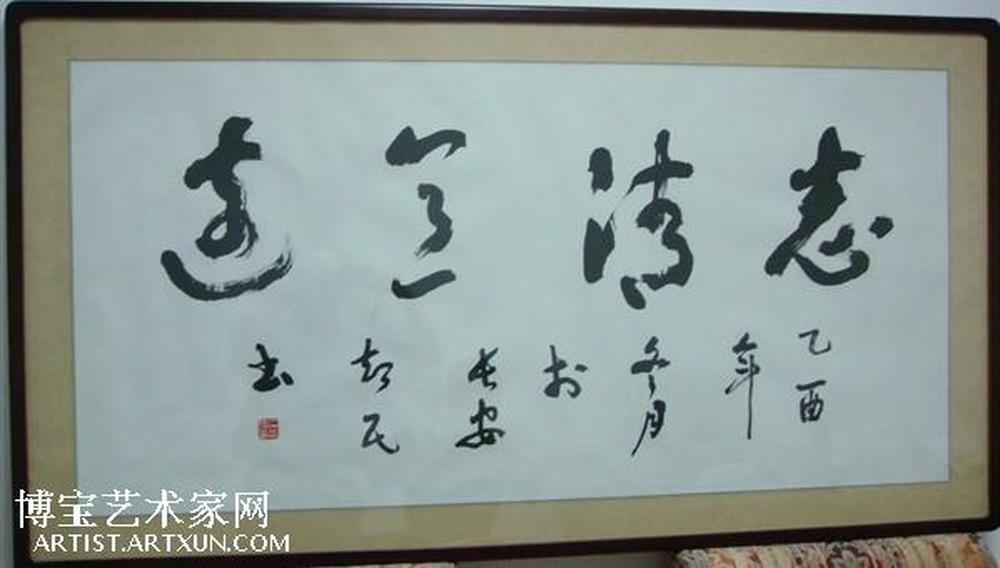 志清意遠
乙酉
年
冬月
於
长安
民
书
博宝艺术家网
ARTIST.ARTXUN.COM